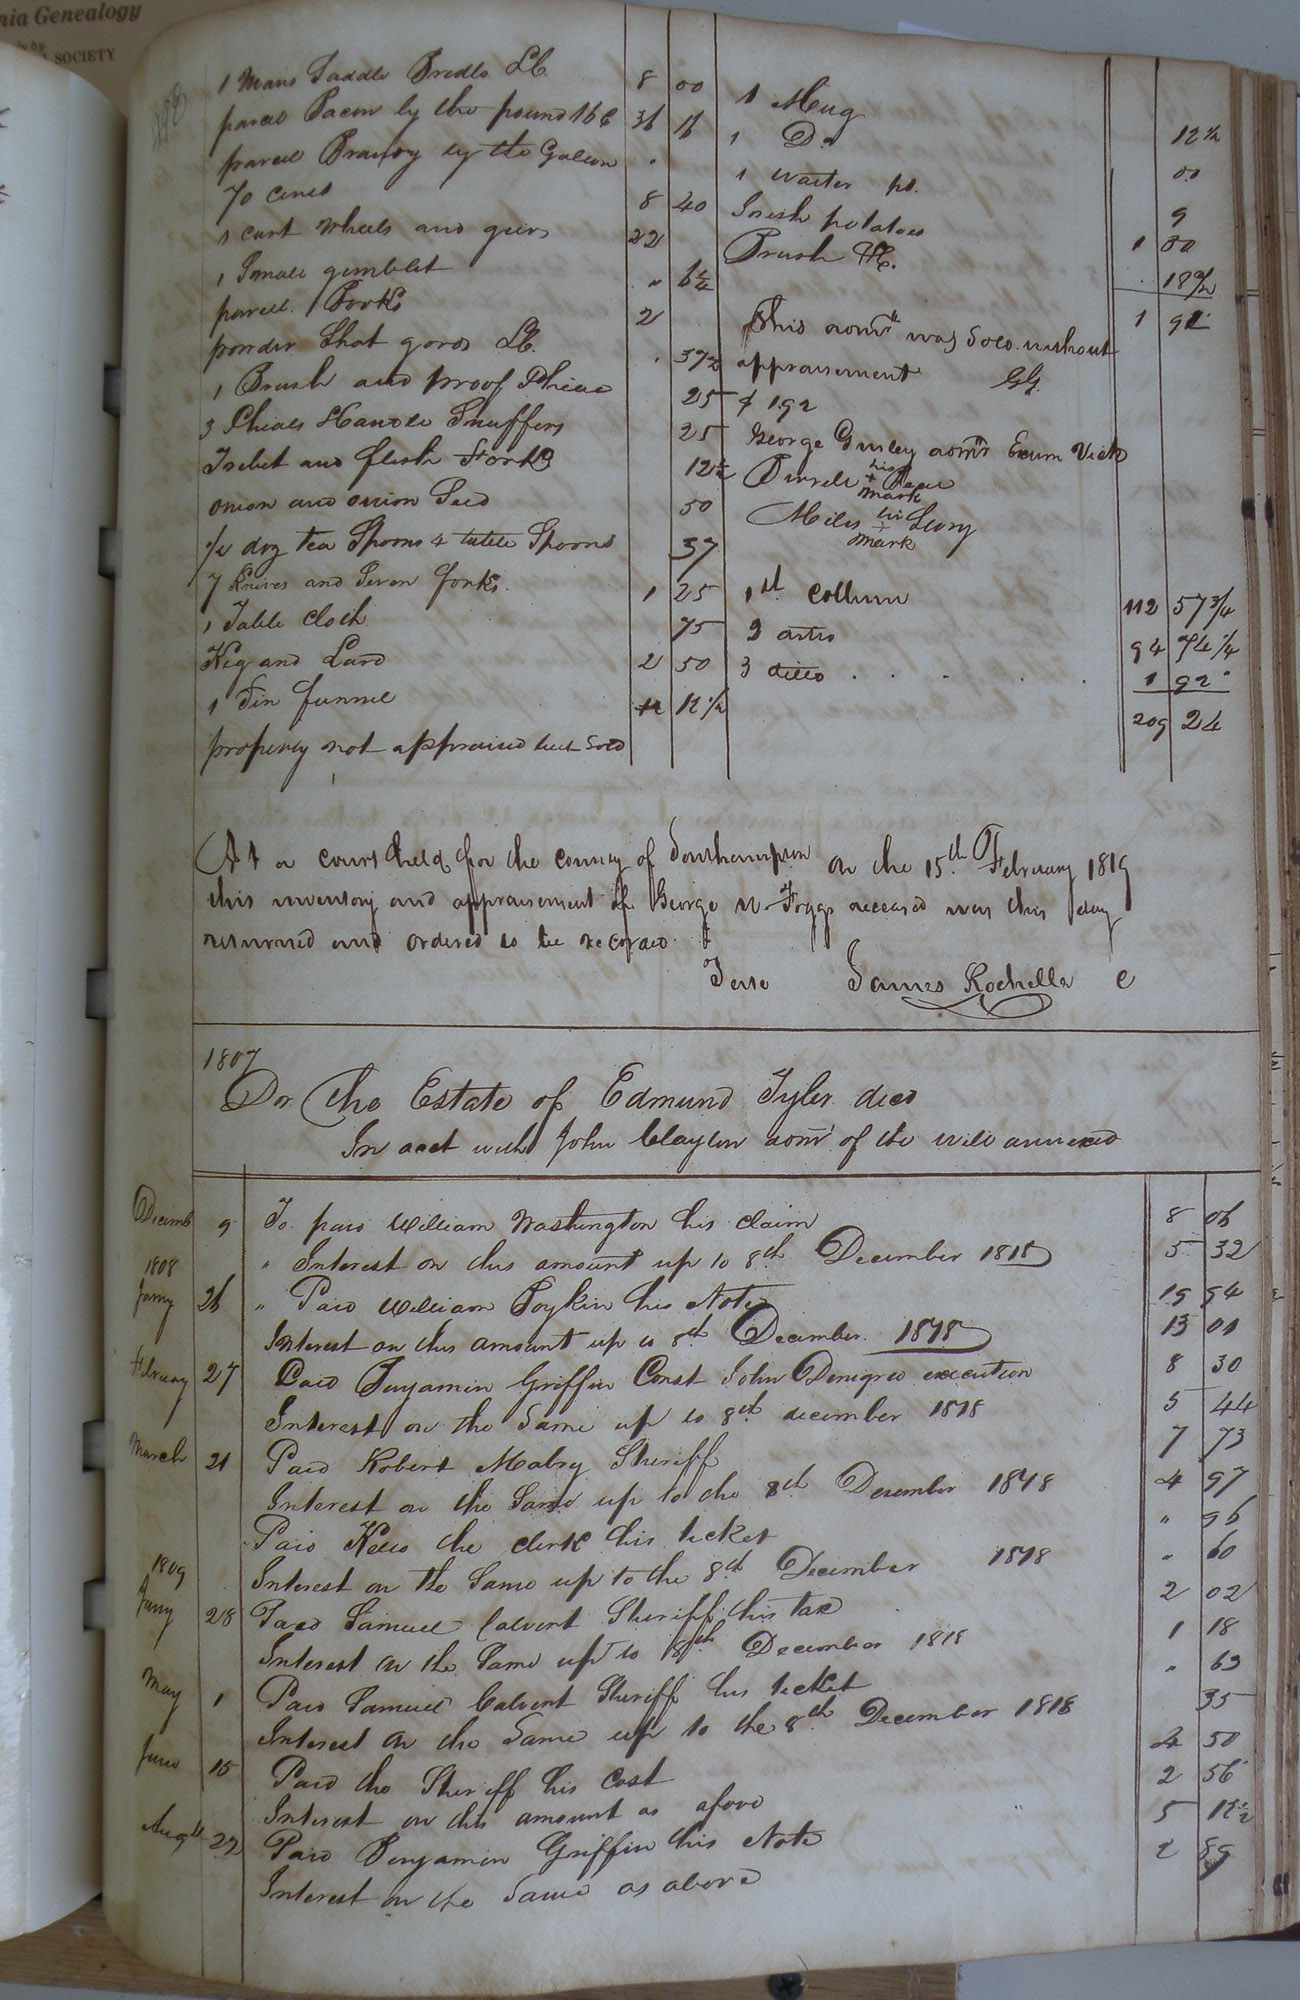 nia Genealogy
SOCIETY
1 Mans Saddle Bredle &c. 8 00
parcel Bacon by the pound 16 c 36 16
parcel Brandy by the Galeon "
70 8 40
1 cart wheels and geers 22
1 Smale gimblet " 6 1/4
parcel Books 2
powder Shot gord &c. . 37 1/2
1 Brush and proof Phial 25
3 Phials Handle Snuffers 25
and flesh Forks 12 1/2
onion and onion Seed 50
1/2 doz tea Spoons 4 table Spoons 37
7 Knives and Seven forks 1 25
1 Table cloth 75
Keg and Lard 2 50
1 Tin funnel 12 1/2
property not appraised but Sold
1 Mug 12 1/2
1 Do
1 waiter pd. 9
Irish potatoes 1 00
Brush &c. . 18 1/2
1 92
This admr was Sold without
appraisement GG.
$ 1.92
George Gurley admr Exum Vick
his
+
mark
Miles his Levry
+
mark
1st Collumn 112 57 3/4
2 ditto 94 74 1/4
3 ditto . . . . 1 92
209 24
At a court held for the county of Southampton on the 15th February 1819
this inventory and appraisement of George W Foggs deceased was this day
returned and ordered to be recorded
Teste James Rochelle C
1807
Dr. The Estate of Edmund Tyler decd
In acct with John Clayton admr of the will annexed
Decemb 9 To paid William Washington his claim 8 06
" Interest on this amount up to 8th December 1818 5 32
1808
Jany 26 " Paid William Boykin his Note 19 94
Interest on this amount up to 8th December 1818 13 01
Febuary 27 Paid Benjamin Griffin Const John execution 8 30
Interest on the Same up to 8th december 1818 5 44
March 21 Paid Robert Mabry Sheriff 7 73
Interest on the Same up to the 8th December 1818 4 97
Paid Kello the clerk his ticket " 96
Interest on the Same up to the 8th December 1818 " 60
1809
Jany 28 Paid Samuel Calvert Sheriff his tax 2 02
Interest on the Same up to 8th December 1818 1 18
May 1 Paid Samuel Calvert Sheriff his ticket " 63
Interest on the Same up to the 8th December 1818 35
June 15 Paid the Sheriff his Cost 4 50
Interest on this amount as afore 2 56
Augst 22 Paid Benjamin Griffin his Note 5 12 1/2
Interest on the Same as above 2 89